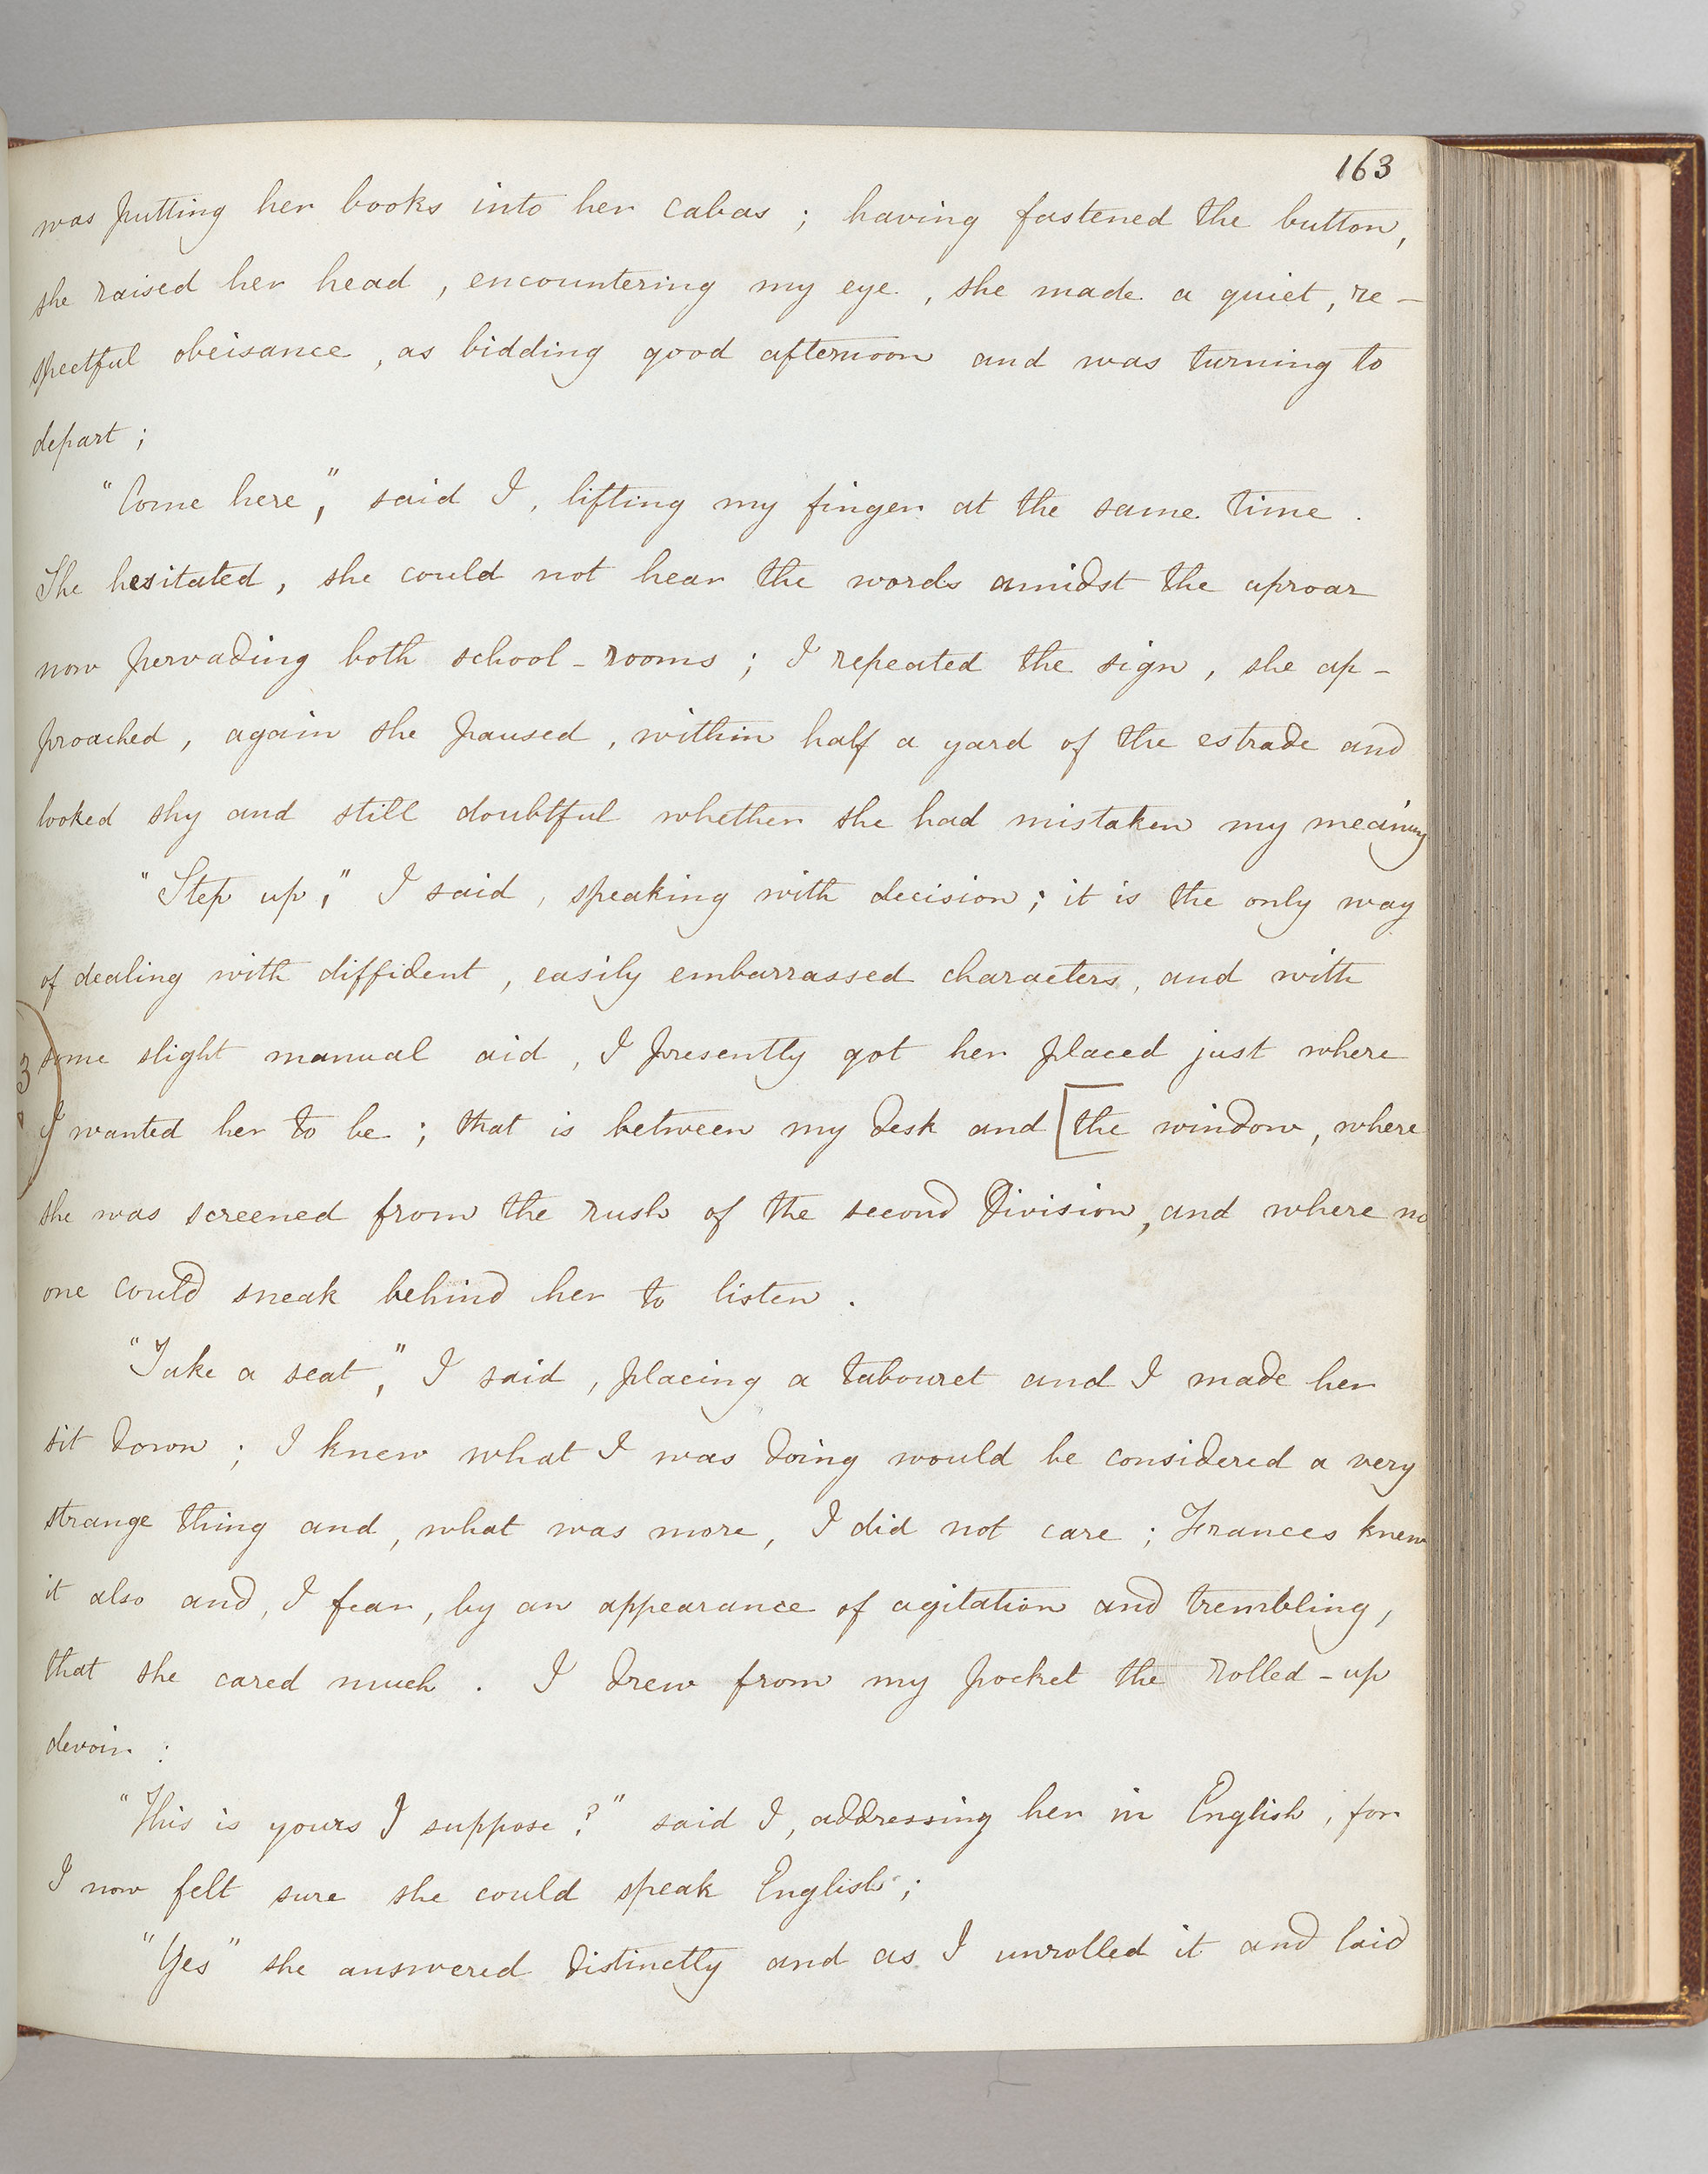 163
was putting her books into her cabas ; having fastened the button,
she raised her head , encountering my eye , she made a quiet, re-
spectful obeisance , as bidding good afternoon and was turning to
depart ;
"Come here," said I , lifting my finger at the same time .
She hesitated , she could not hear the words amidst the uproar
now pervading both school-rooms ; I repeated the sign , she ap-
proached , again she paused , within half a yard of the estrade and
looked shy and still doubtful whether she had mistaken my meaning
"Step up," I said , speaking with decision ; it is the only way
of dealing with diffident , easily embarrassed characters , and with
3 some slight manual aid , I presently got her placed just where
I wanted her to be ; that is between my desk and [the window , where
she was screened from the rush of the second Division, and where no
one could sneak behind her to listen .
"Take a seat," I said , placing a tabouret and I made her
sit down ; I knew what I was doing would be considered a very
strange thing and , what was more , I did not care ; Frances knew
it also and , I fear , by an appearance of agitation and trembling ,
that she cared much . I drew from my pocket the rolled-up
devoir :
"This is yours I suppose ?" said I , addressing her in English , for
I now felt sure she could speak English ;
"Yes" she answered distinctly and as I unrolled it and laid